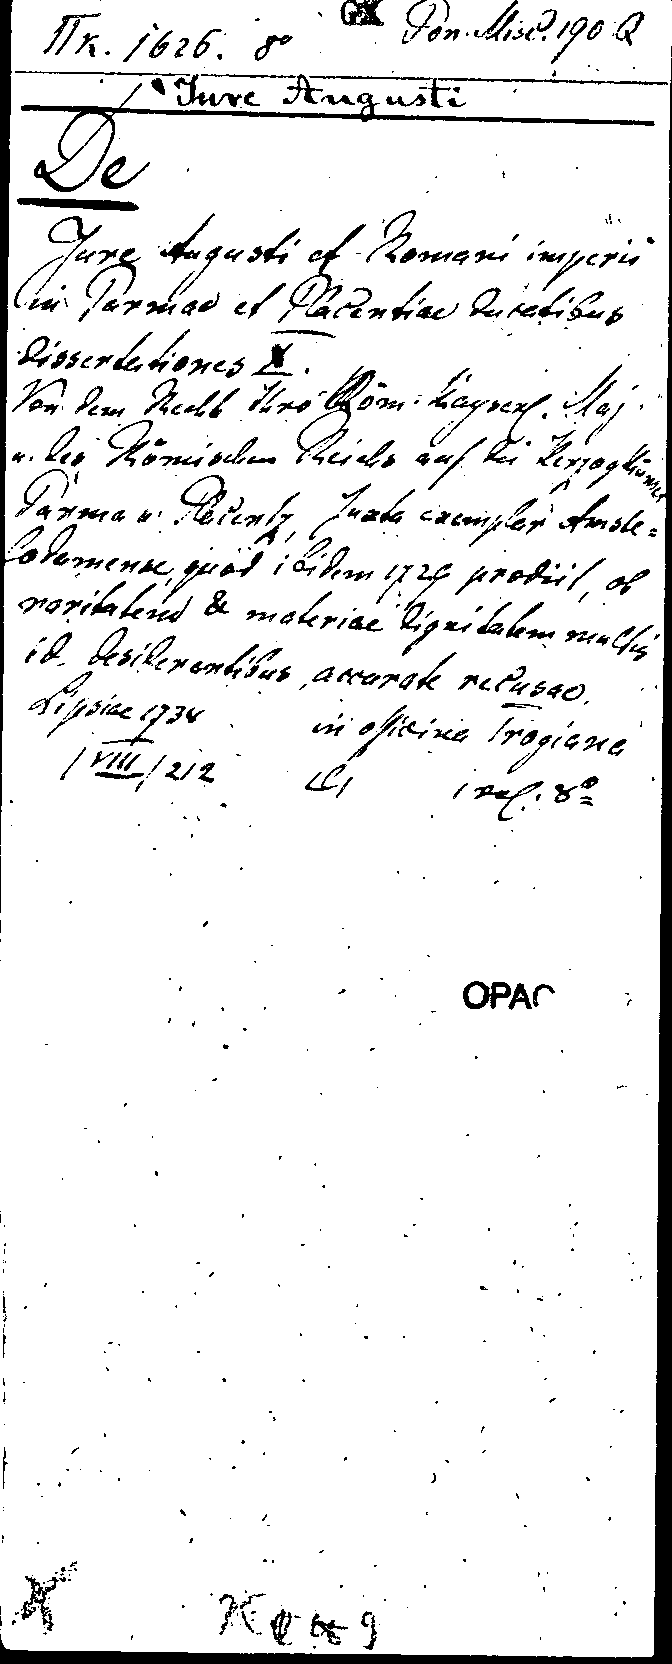 IIк. 1626. 8° Pön. Misc. 190 Q
Jure Augusti
De
Jure Augusti et Romani imperii
in Parmae et Placentiae ducatibus
dissertationes X.
Von dem Recht Ihro Röm. Kayserl. Maj.
u. des Römischen Reichs auf die Herzogthümer
Parma u. Placentz, Juxta exemplar Amste=
lodamense, quod ibidem 1729 prodiit, ob
raritatem & materiae dignitatem multis
id desiderantibus, accurate recusae.
Lipsiae 1734 in officina Trogiana
/VIII/ 212 1 vol. 8°
OPAC